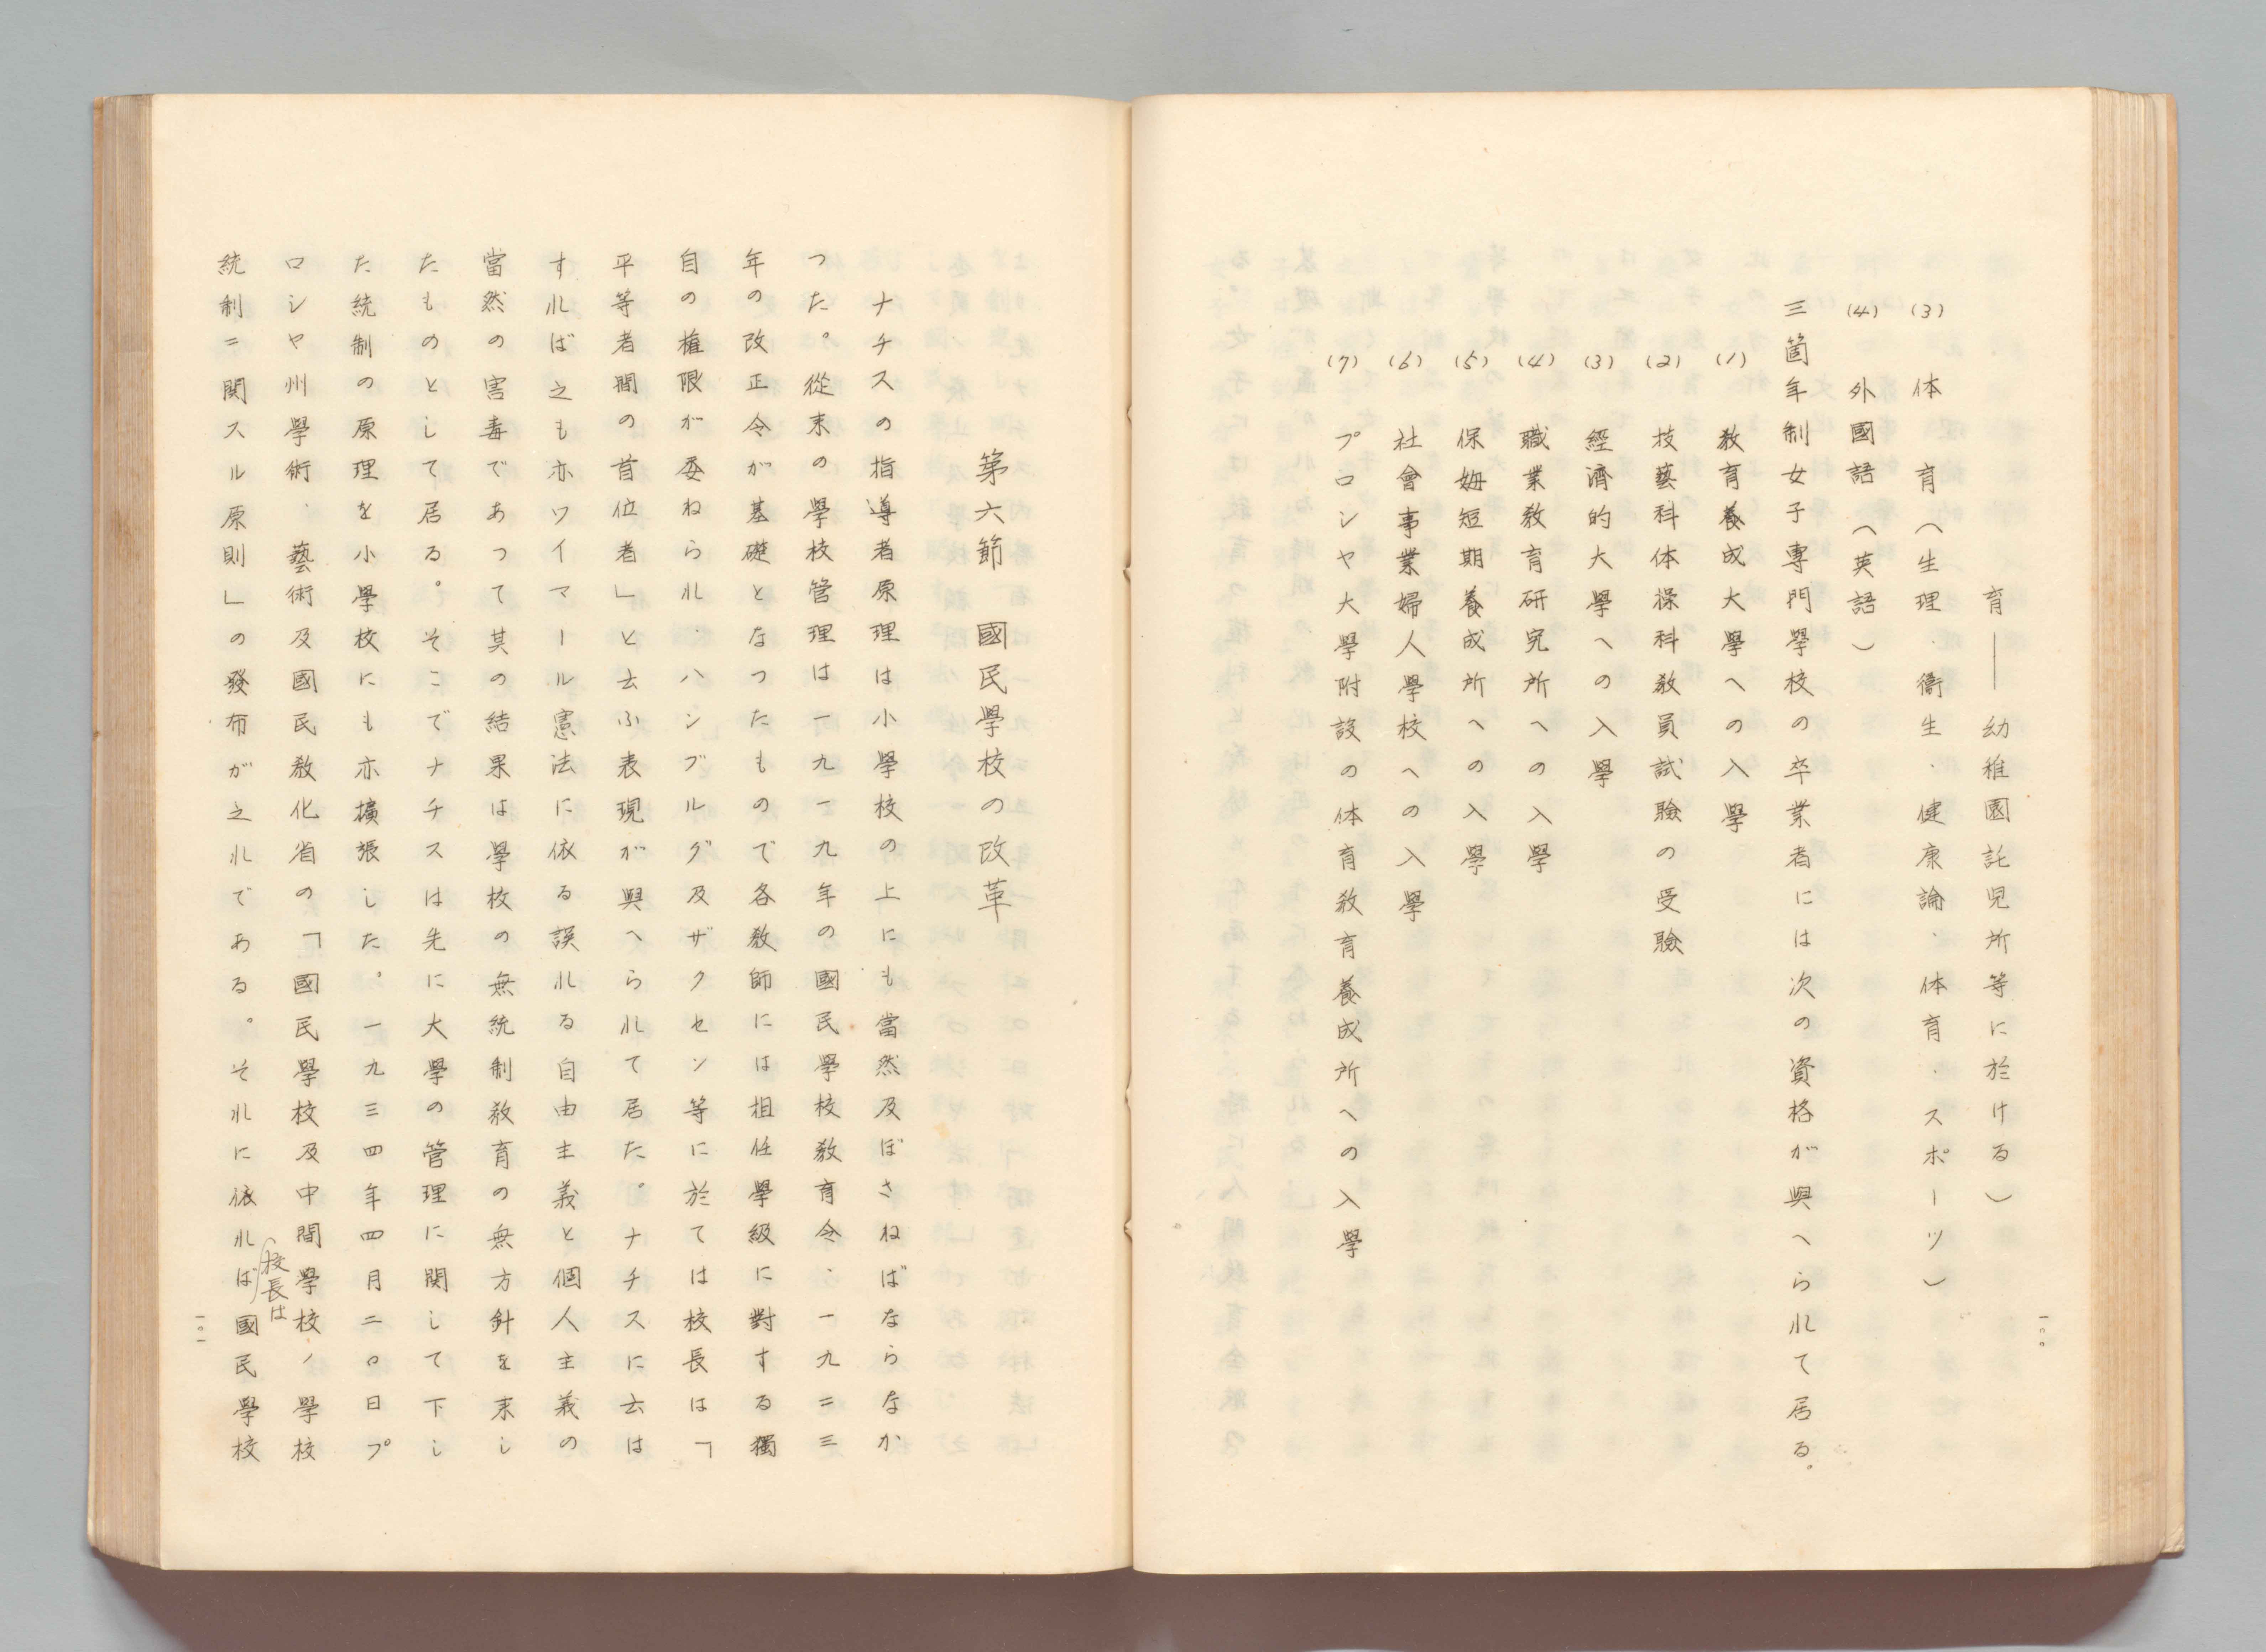 育――幼稚園託児所等に於ける)
(3) 体育(生理、衞生、健康論、体育、スポーツ)
(4) 外國語(英語)
三箇年制女子專門學校の卒業者には次の資格が與へられて居る。
(1) 敎育養成大學への入學
(2) 技藝科体操科敎員試驗の受驗
(3) 經濟的大學への入學
(4) 職業敎育研究所への入學
(5) 保姆短期養成所への入學
(6) 社會事業婦人學校への入學
(7) プロシヤ大學附設の体育敎育養成所への入學
一〇〇
第六節 國民學校の改革
ナチスの指導者原理は小學校の上にも當然及ぼさねばならなか
つた。從来の學校管理は一九一九年の國民學校敎育令、一九二三
年の改正令が基礎となつたもので各敎師には担任學級に對する獨
自の権限が委ねられ、ハンブルグ及ザクセン等に於ては校長は「
平等者間の首位者」と云ふ表現が與へられて居た。ナチスに云は
すれば之も亦ワイマール憲法に依る誤れる自由主義と個人主義の
當然の害毒であつて其の結果は學校の無統制敎育の無方針を来し
たものとして居る。そこでナチスは先に大學の管理に関して下し
た統制の原理を小學校にも亦擴張した。一九三四年四月二〇日プ
ロシヤ州學術、藝術及國民敎化省の「國民學校及中間學校ノ學校
統制ニ関スル原則」の發布が之れである。それに依れば國民學校
校長は
一〇一